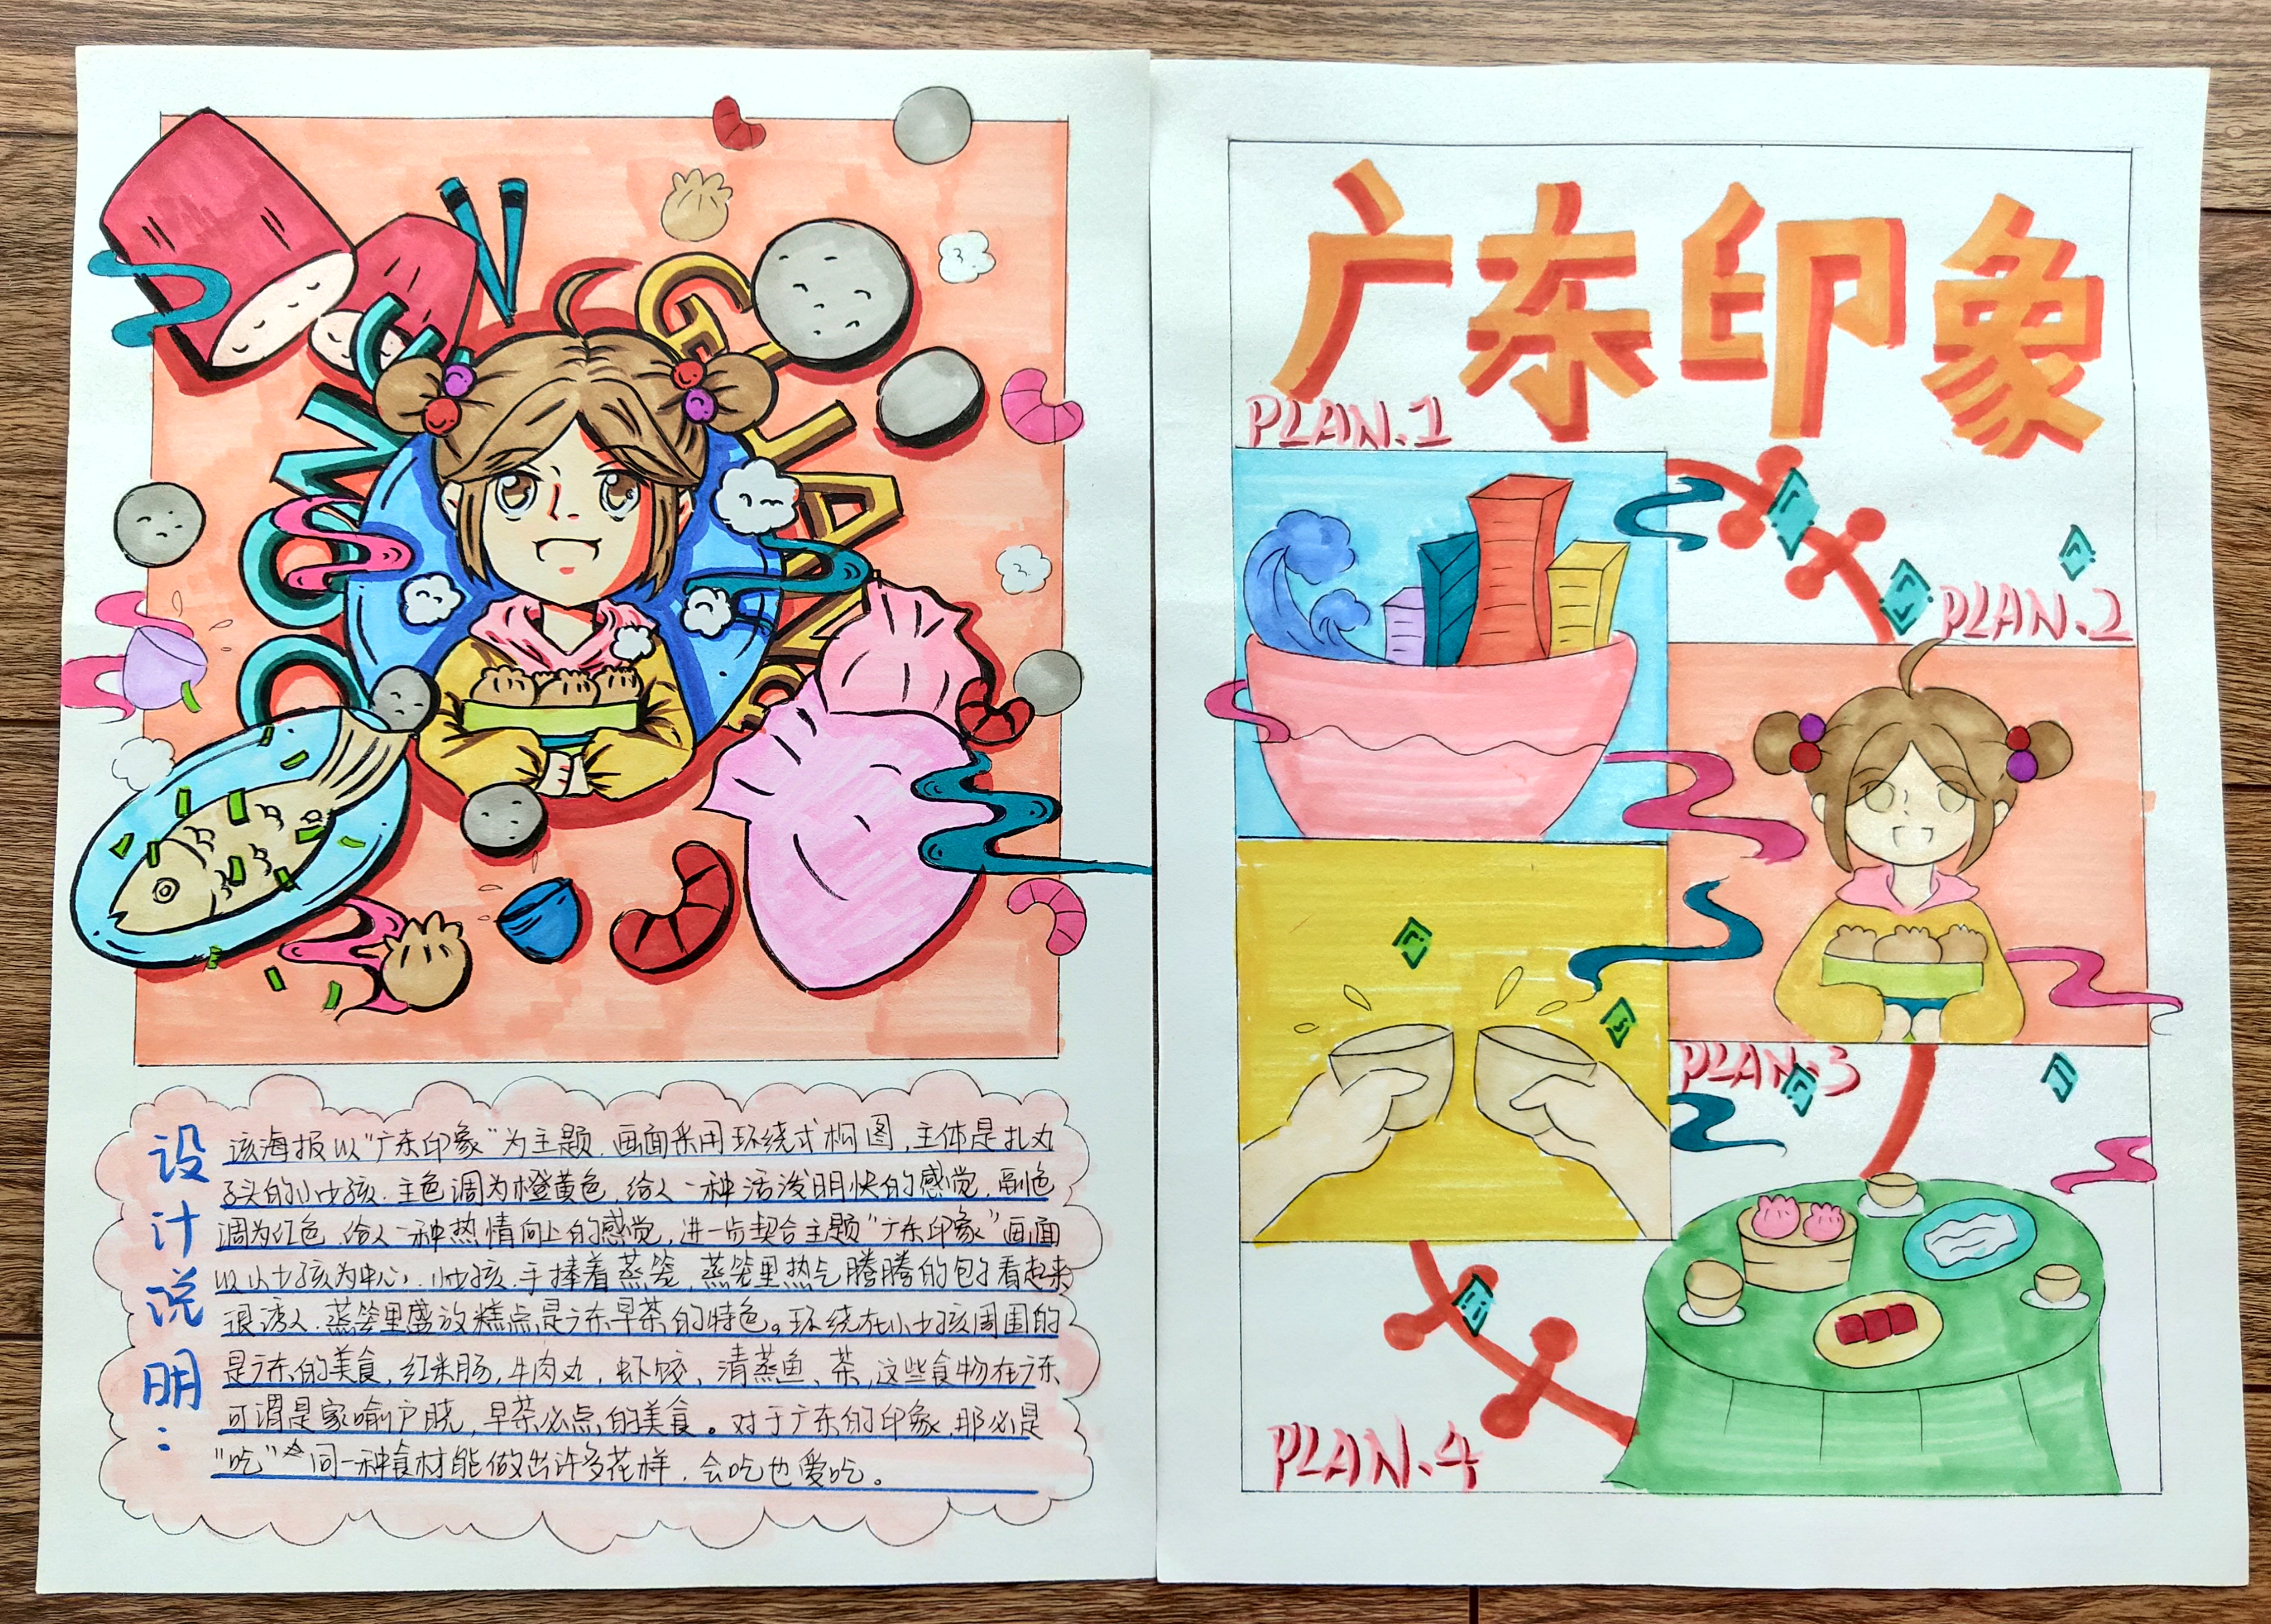 COME
GUANGDONG
设计说明：
该海报以“广东印象”为主题，画面采用环绕式构图，主体是扎丸
子头的小女孩，主色调为橙黄色，给人一种活泼明快的感觉，副色
调为红色，给人一种热情向上的感觉，进一步契合主题“广东印象”画面
以小女孩为中心，小女孩手捧着蒸笼，蒸笼里热气腾腾的包子看起来
很诱人，蒸笼里盛放糕点是广东早茶的特色。环绕在小女孩周围的
是广东的美食，红米肠，牛肉丸，虾饺、清蒸鱼、茶，这些食物在广东
可谓是家喻户晓，早茶必点的美食。对于广东的印象，那必是
“吃”同一种食材能做出许多花样，会吃也爱吃。
广东印象
PLAN.1
PLAN.2
PLAN.3
PLAN.4